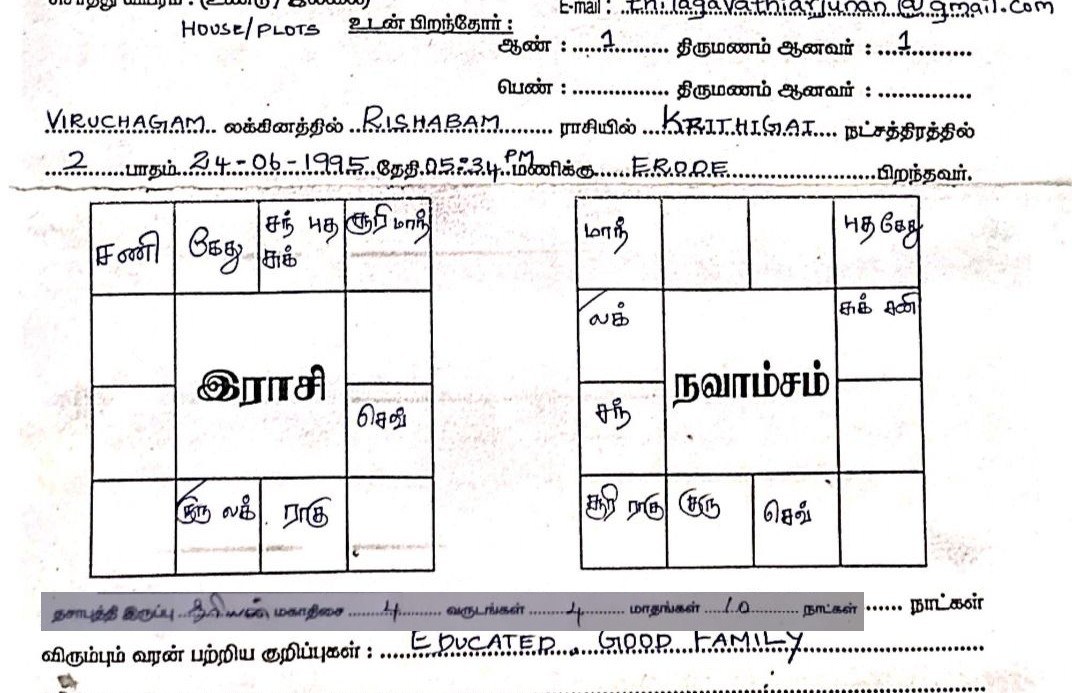 E-mail : thilagavathiarjunan@gmail.com
HOUSE/PLOTS உடன் பிறந்தோர் :
ஆண் : 1 திருமணம் ஆனவர் : 1
பெண் : திருமணம் ஆனவர் :
VIRUCHAGAM லக்கினத்தில் RISHABAM ராசியில் KRITHIGAI நட்சத்திரத்தில்
2 பாதம் 24-06-1995 தேதி 05:34 PM மணிக்கு ERODE பிறந்தவர்.
சனி கேது சந் புத சூரி மாந்
சுக்
இராசி
செவ்
குரு லக் ராகு
மாந் புத கேது
லக் சுக் சனி
நவாம்சம்
சந்
சூரி ராகு குரு செவ்
தசாபுத்தி இருப்பு சூரியன் மகாதிசை 4 வருடங்கள் 4 மாதங்கள் 10 நாட்கள் நாட்கள்
விரும்பும் வரன் பற்றிய குறிப்புகள் : EDUCATED. GOOD FAMILY